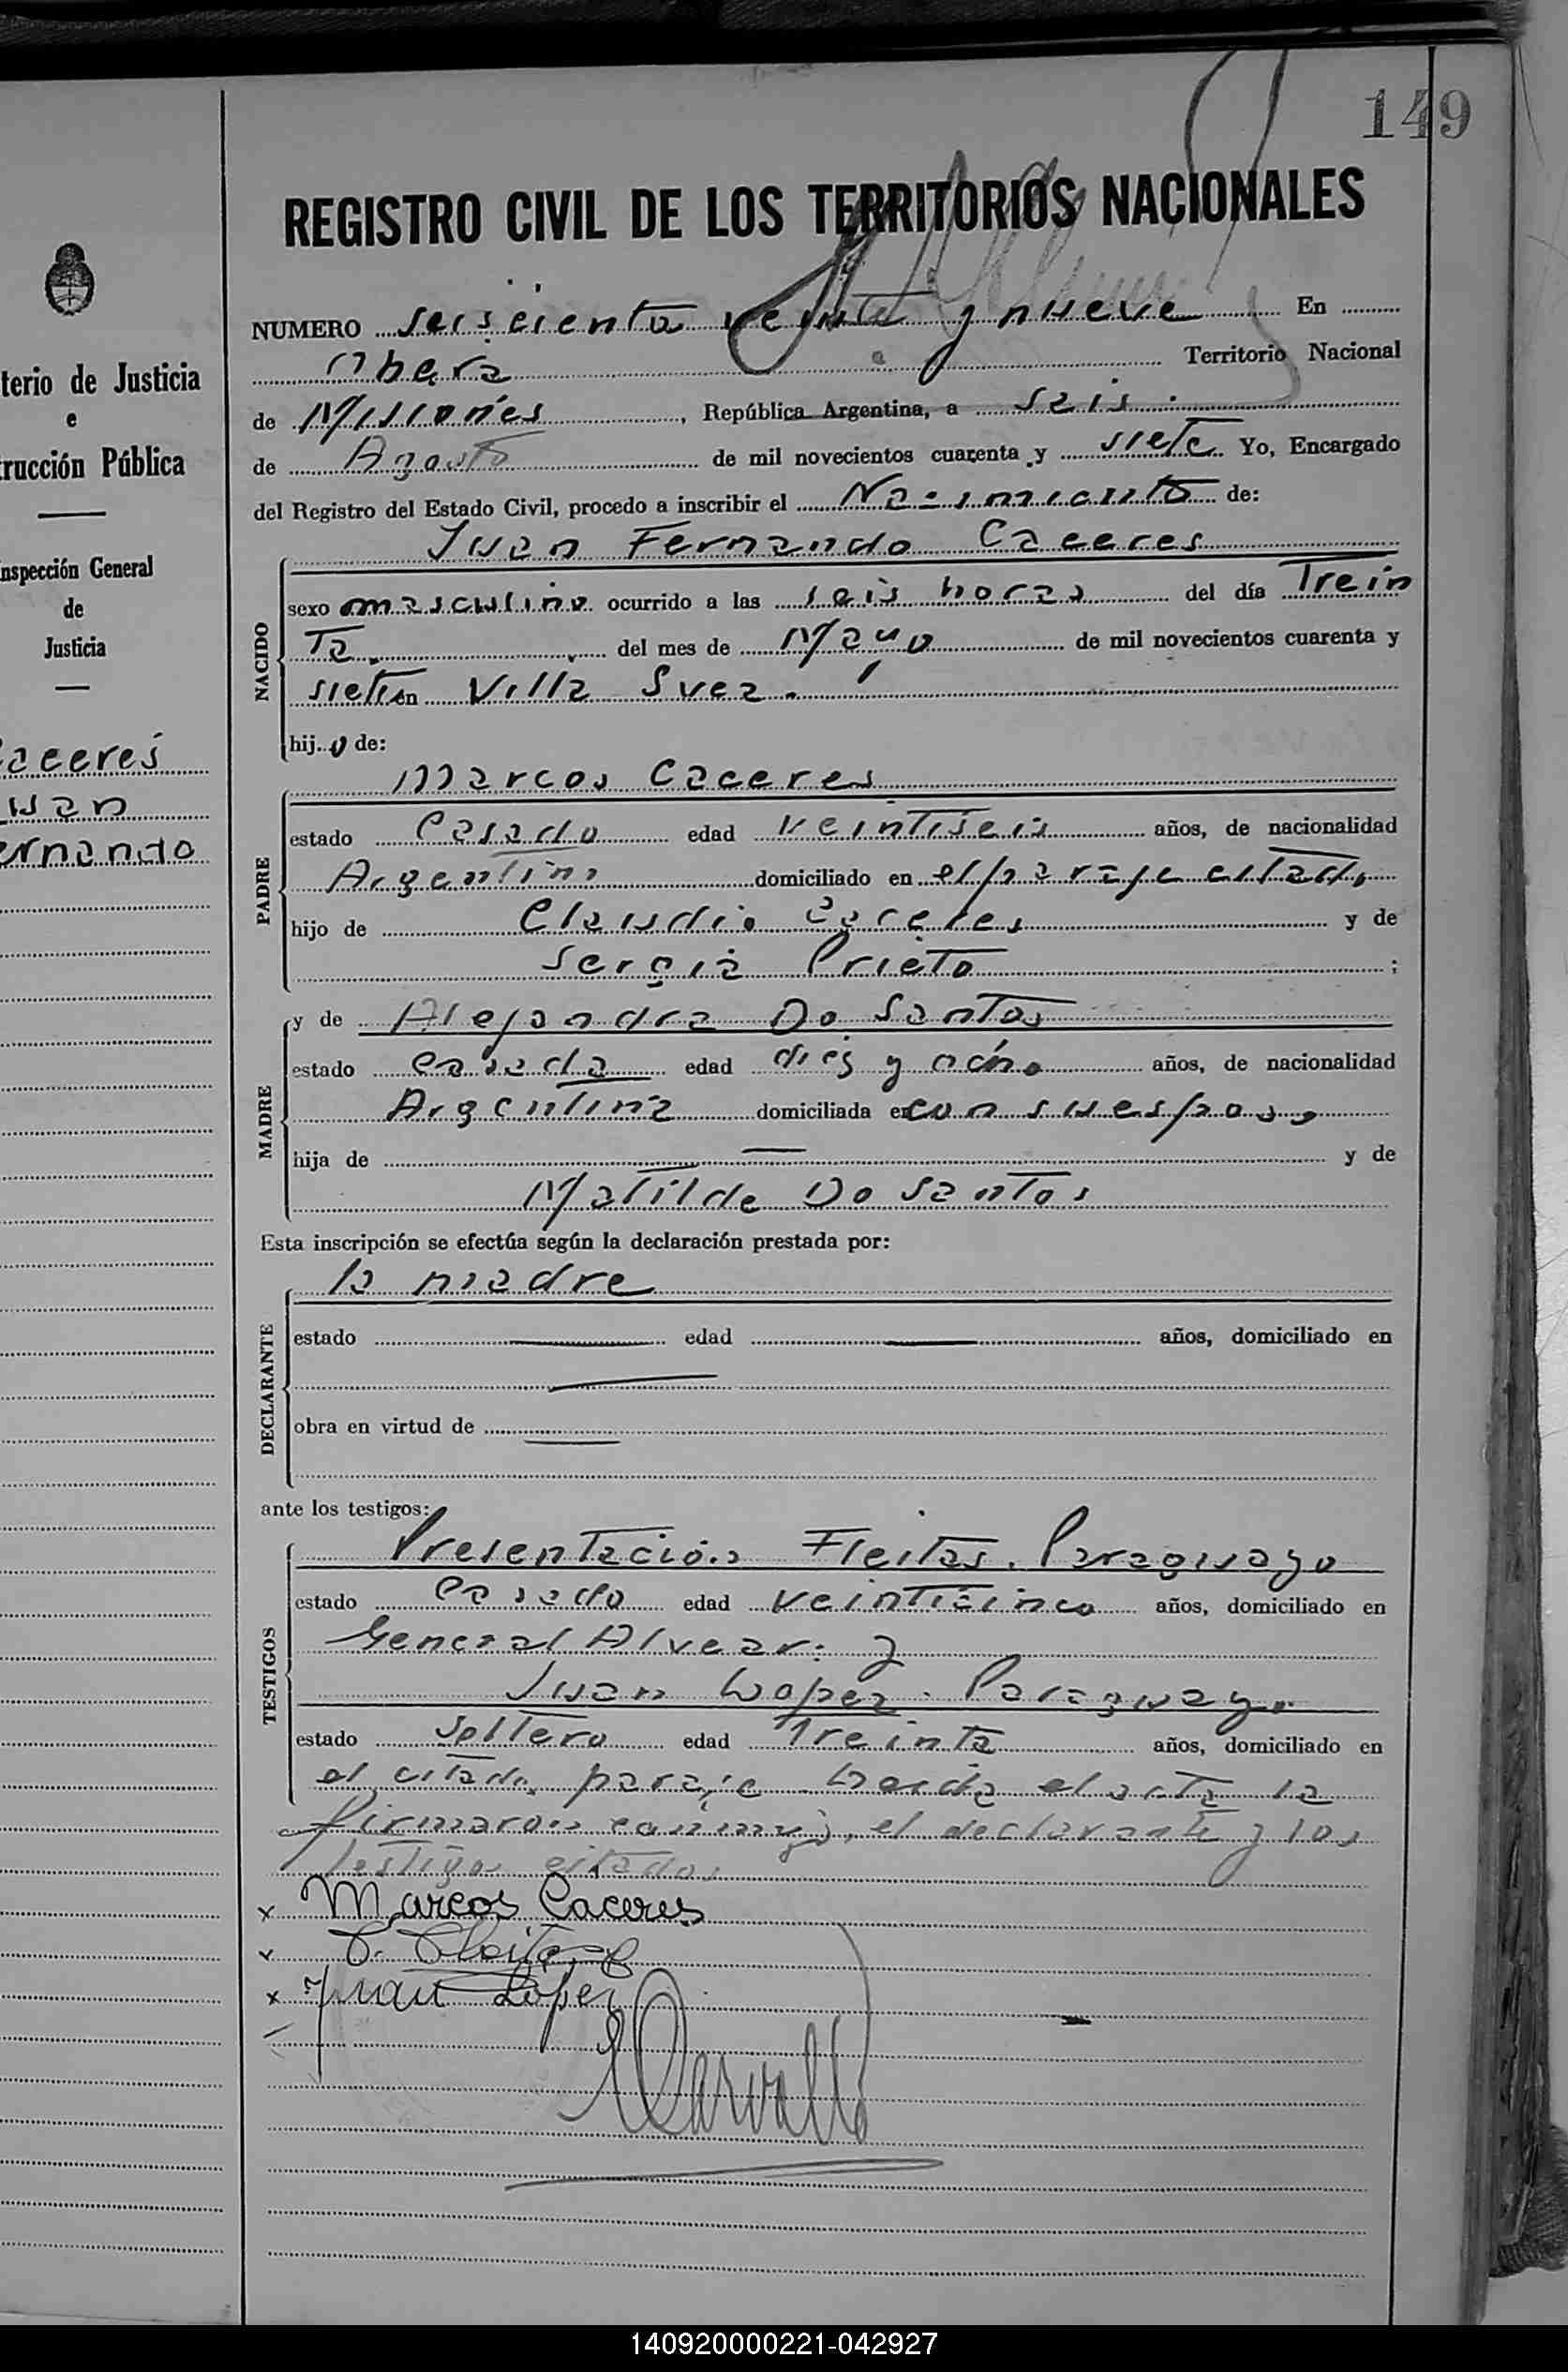 149
REGISTRO CIVIL DE LOS TERRITORIOS NACIONALES
NUMERO seiscientos veinte y nueve En
Obera Territorio Nacional
de Misiones, República Argentina, a seis
de Agosto de mil novecientos cuarenta y siete Yo, Encargado
del Registro del Estado Civil, procedo a inscribir el Nacimiento de:
Juan Fernando Caceres
sexo masculino ocurrido a las seis horas del día Trein
ta del mes de Mayo de mil novecientos cuarenta y
siete en Villa Svea.
NACIDO
hijo de:
Marcos Caceres
estado Casado edad veintiseis años, de nacionalidad
Argentino domiciliado en el paraje citado
PADRE
hijo de Claudio Caceres y de
Sergia Prieto ;
y de Alejandra Do Santos
estado casada edad dies y ocho años, de nacionalidad
Argentina domiciliada en con su esposo
MADRE
hija de — y de
Matilde Do Santos
Esta inscripción se efectúa según la declaración prestada por:
la madre
estado — edad — años, domiciliado en
DECLARANTE
obra en virtud de —
ante los testigos:
Presentación Fleitas. Paraguayo
estado casado edad veinticinco años, domiciliado en
General Alvear. y
TESTIGOS
Juan Lopez. Paraguayo
estado soltero edad Treinta años, domiciliado en
el citado paraje Leida el acta la
firmaron conmigo, el declarante y los
testigos citados
x Marcos Caceres
x P. Fleitas
x Juan Lopez
terio de Justicia
e
trucción Pública
Inspección General
de
Justicia
Caceres
Juan
ernando
140920000221-042927